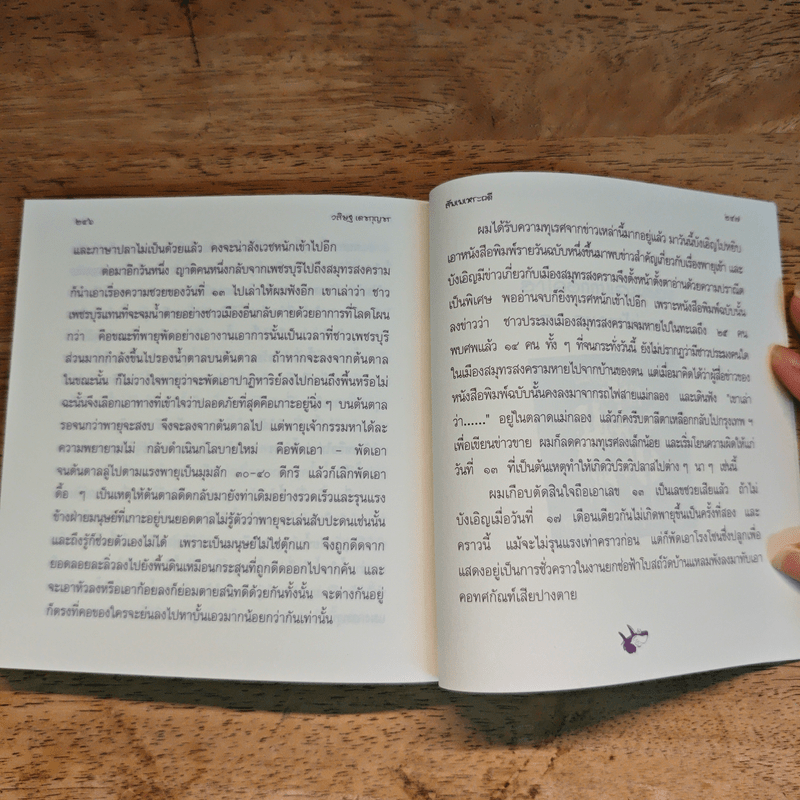 ๒๔๖
วสิษฐ เดชกุญชร
และภาษาปลาไม่เป็นด้วยแล้ว คงจะน่าสังเวชหนักเข้าไปอีก
ต่อมาอีกวันหนึ่ง ญาติคนหนึ่งกลับจากเพชรบุรีไปถึงสมุทรสงคราม
ก็นำเอาเรื่องความซวยของวันที่ ๑๓ ไปเล่าให้ผมฟังอีก เขาเล่าว่า ชาว
เพชรบุรีแทนที่จะจมน้ำตายอย่างชาวเมืองอื่นกลับตายด้วยอาการที่โลดโผน
กว่า คือขณะที่พายุพัดอย่างเอางานเอาการนั้นเป็นเวลาที่ชาวเพชรบุรี
ส่วนมากกำลังขึ้นไปรองน้ำตาลบนต้นตาล ถ้าหากจะลงจากต้นตาล
ในขณะนั้น ก็ไม่วางใจพายุว่าจะพัดเอาปาฏิหาริย์ลงไปก่อนถึงพื้นหรือไม่
ฉะนั้นจึงเลือกเอาทางที่เข้าใจว่าปลอดภัยที่สุดคือเกาะอยู่นิ่ง ๆ บนต้นตาล
รอจนกว่าพายุจะสงบ จึงจะลงจากต้นตาลไป แต่พายุเจ้ากรรมหาได้ละ
ความพยายามไม่ กลับดำเนินกโลบายใหม่ คือพัดเอา – พัดเอา
จนต้นตาลลู่ไปตามแรงพายุเป็นมุมสัก ๓๐-๔๐ ดีกรี แล้วก็เลิกพัดเอา
ดื้อ ๆ เป็นเหตุให้ต้นตาลดีดกลับมายังท่าเดิมอย่างรวดเร็วและรุนแรง
ข้างฝ่ายมนุษย์ที่เกาะอยู่บนยอดตาลไม่รู้ตัวว่าพายุจะเล่นสัปปะดนเช่นนั้น
และถึงรู้ก็ช่วยตัวเองไม่ได้ เพราะเป็นมนุษย์ไม่ใช่ตุ๊กแก จึงถูกดีดจาก
ยอดลอยละลิ่วลงไปยังพื้นดินเหมือนกระสุนที่ถูกดีดออกไปจากคัน และ
จะเอาหัวลงหรือเอาก้อยลงก็ย่อมตายสนิทดีด้วยกันทั้งนั้น จะต่างกันอยู่
ก็ตรงที่คอของใครจะย่นลงไปหาบั้นเอวมากน้อยกว่ากันเท่านั้น
สันตะหระวดี
๒๔๗
ผมได้รับความทุเรศจากข่าวเหล่านี้มากอยู่แล้ว มาวันนี้บังเอิญไปหยิบ
เอาหนังสือพิมพ์รายวันฉบับหนึ่งขึ้นมาพบข่าวสำคัญเกี่ยวกับเรื่องพายุเข้า และ
บังเอิญมีข่าวเกี่ยวกับเมืองสมุทรสงครามจึงตั้งหน้าตั้งตาอ่านด้วยความปราณีต
เป็นพิเศษ พออ่านจบก็ยิ่งทุเรศหนักเข้าไปอีก เพราะหนังสือพิมพ์ฉบับนั้น
ลงข่าวว่า ชาวประมงเมืองสมุทรสงครามจมหายไปในทะเลถึง ๒๕ คน
พบศพแล้ว ๑๔ คน ทั้ง ๆ ที่จนกระทั่งวันนี้ ยังไม่ปรากฏว่ามีชาวประมงคนใด
ในเมืองสมุทรสงครามหายไปจากบ้านของตน แต่เมื่อมาคิดได้ว่าผู้สื่อข่าวของ
หนังสือพิมพ์ฉบับนั้นคงลงมาจากรถไฟสายแม่กลอง และเดินฟัง "เขาเล่า
ว่า......" อยู่ในตลาดแม่กลอง แล้วก็คงรีบตาลีตาเหลือกกลับไปกรุงเทพ ฯ
เพื่อเขียนข่าวขาย ผมก็ลดความทุเรศลงเล็กน้อย และเริ่มโยนความผิดให้แก่
วันที่ ๑๓ ที่เป็นต้นเหตุทำให้เกิดวิปริตวิปลาสไปต่าง ๆ นา ๆ เช่นนี้
ผมเกือบตัดสินใจถือเอาเลข ๑๓ เป็นเลขซวยเสียแล้ว ถ้าไม่
บังเอิญเมื่อวันที่ ๑๗ เดือนเดียวกันไม่เกิดพายุขึ้นเป็นครั้งที่สอง และ
คราวนี้ แม้จะไม่รุนแรงเท่าคราวก่อน แต่ก็พัดเอาโรงโขนซึ่งปลูกเพื่อ
แสดงอยู่เป็นการชั่วคราวในงานยกช่อฟ้าโบสถ์วัดบ้านแหลมพังลงมาทับเอา
คอทศกัณฑ์เสียปางตาย